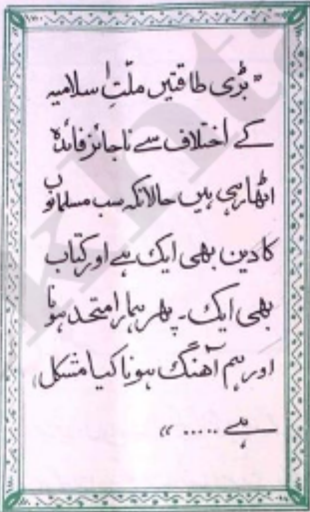 "بڑی طاقتیں ملّتِ اسلامیہ
کے اختلاف سے ناجائز فائدہ
اٹھا رہی ہیں حالانکہ سب مسلمانوں
کا دین بھی ایک ہے اور کتاب
بھی ایک۔ پھر ہمارا متحد ہونا
اور ہم آھنگ ہونا کیا مشکل
ہے ..... "